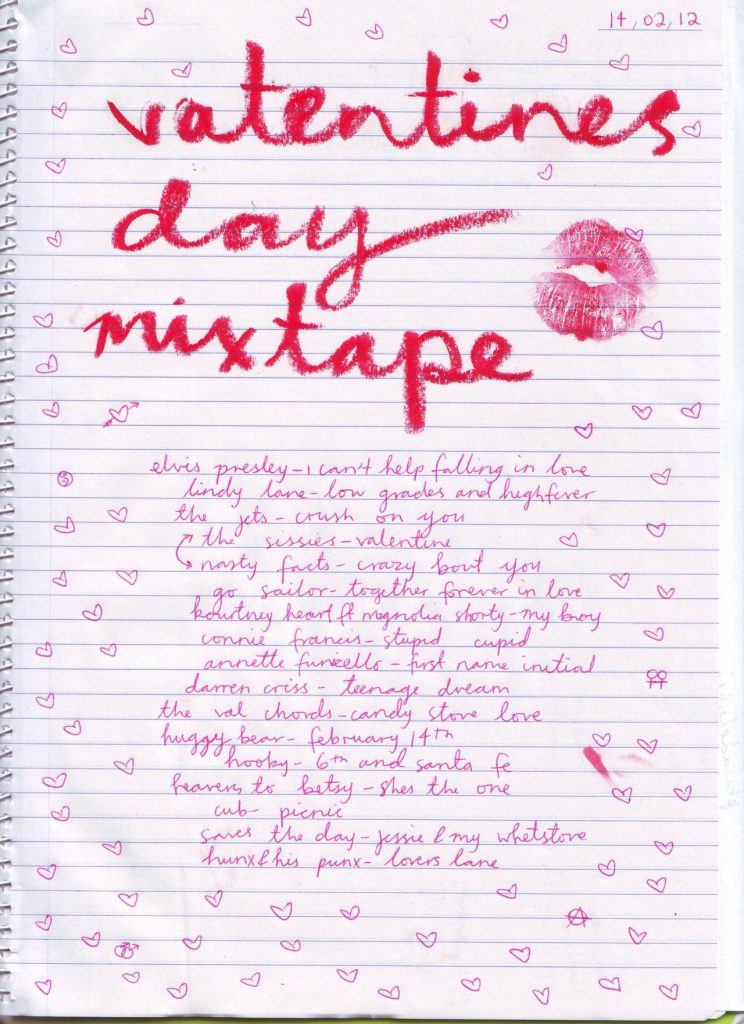 14,02,12
valentines
day
mixtape
elvis presley-i can't help falling in love
lindy lane-low grades and highfever
the jets- crush on you
the sissies-valentine
nasty facts- crazy bout you
go sailor-together forever in love
kourtney heart ft magnolia shorty-my boy
connie francis-stupid cupid
annette funicello-first name initial
darren criss- teenage dream
the val chords-candy store love
huggy bear- february 14th
hooky- 6th and santa fe
heavens to betsy-shes the one
cub- picnic
saves the day-jessie & my whetstone
hunx & his punx- lovers lane